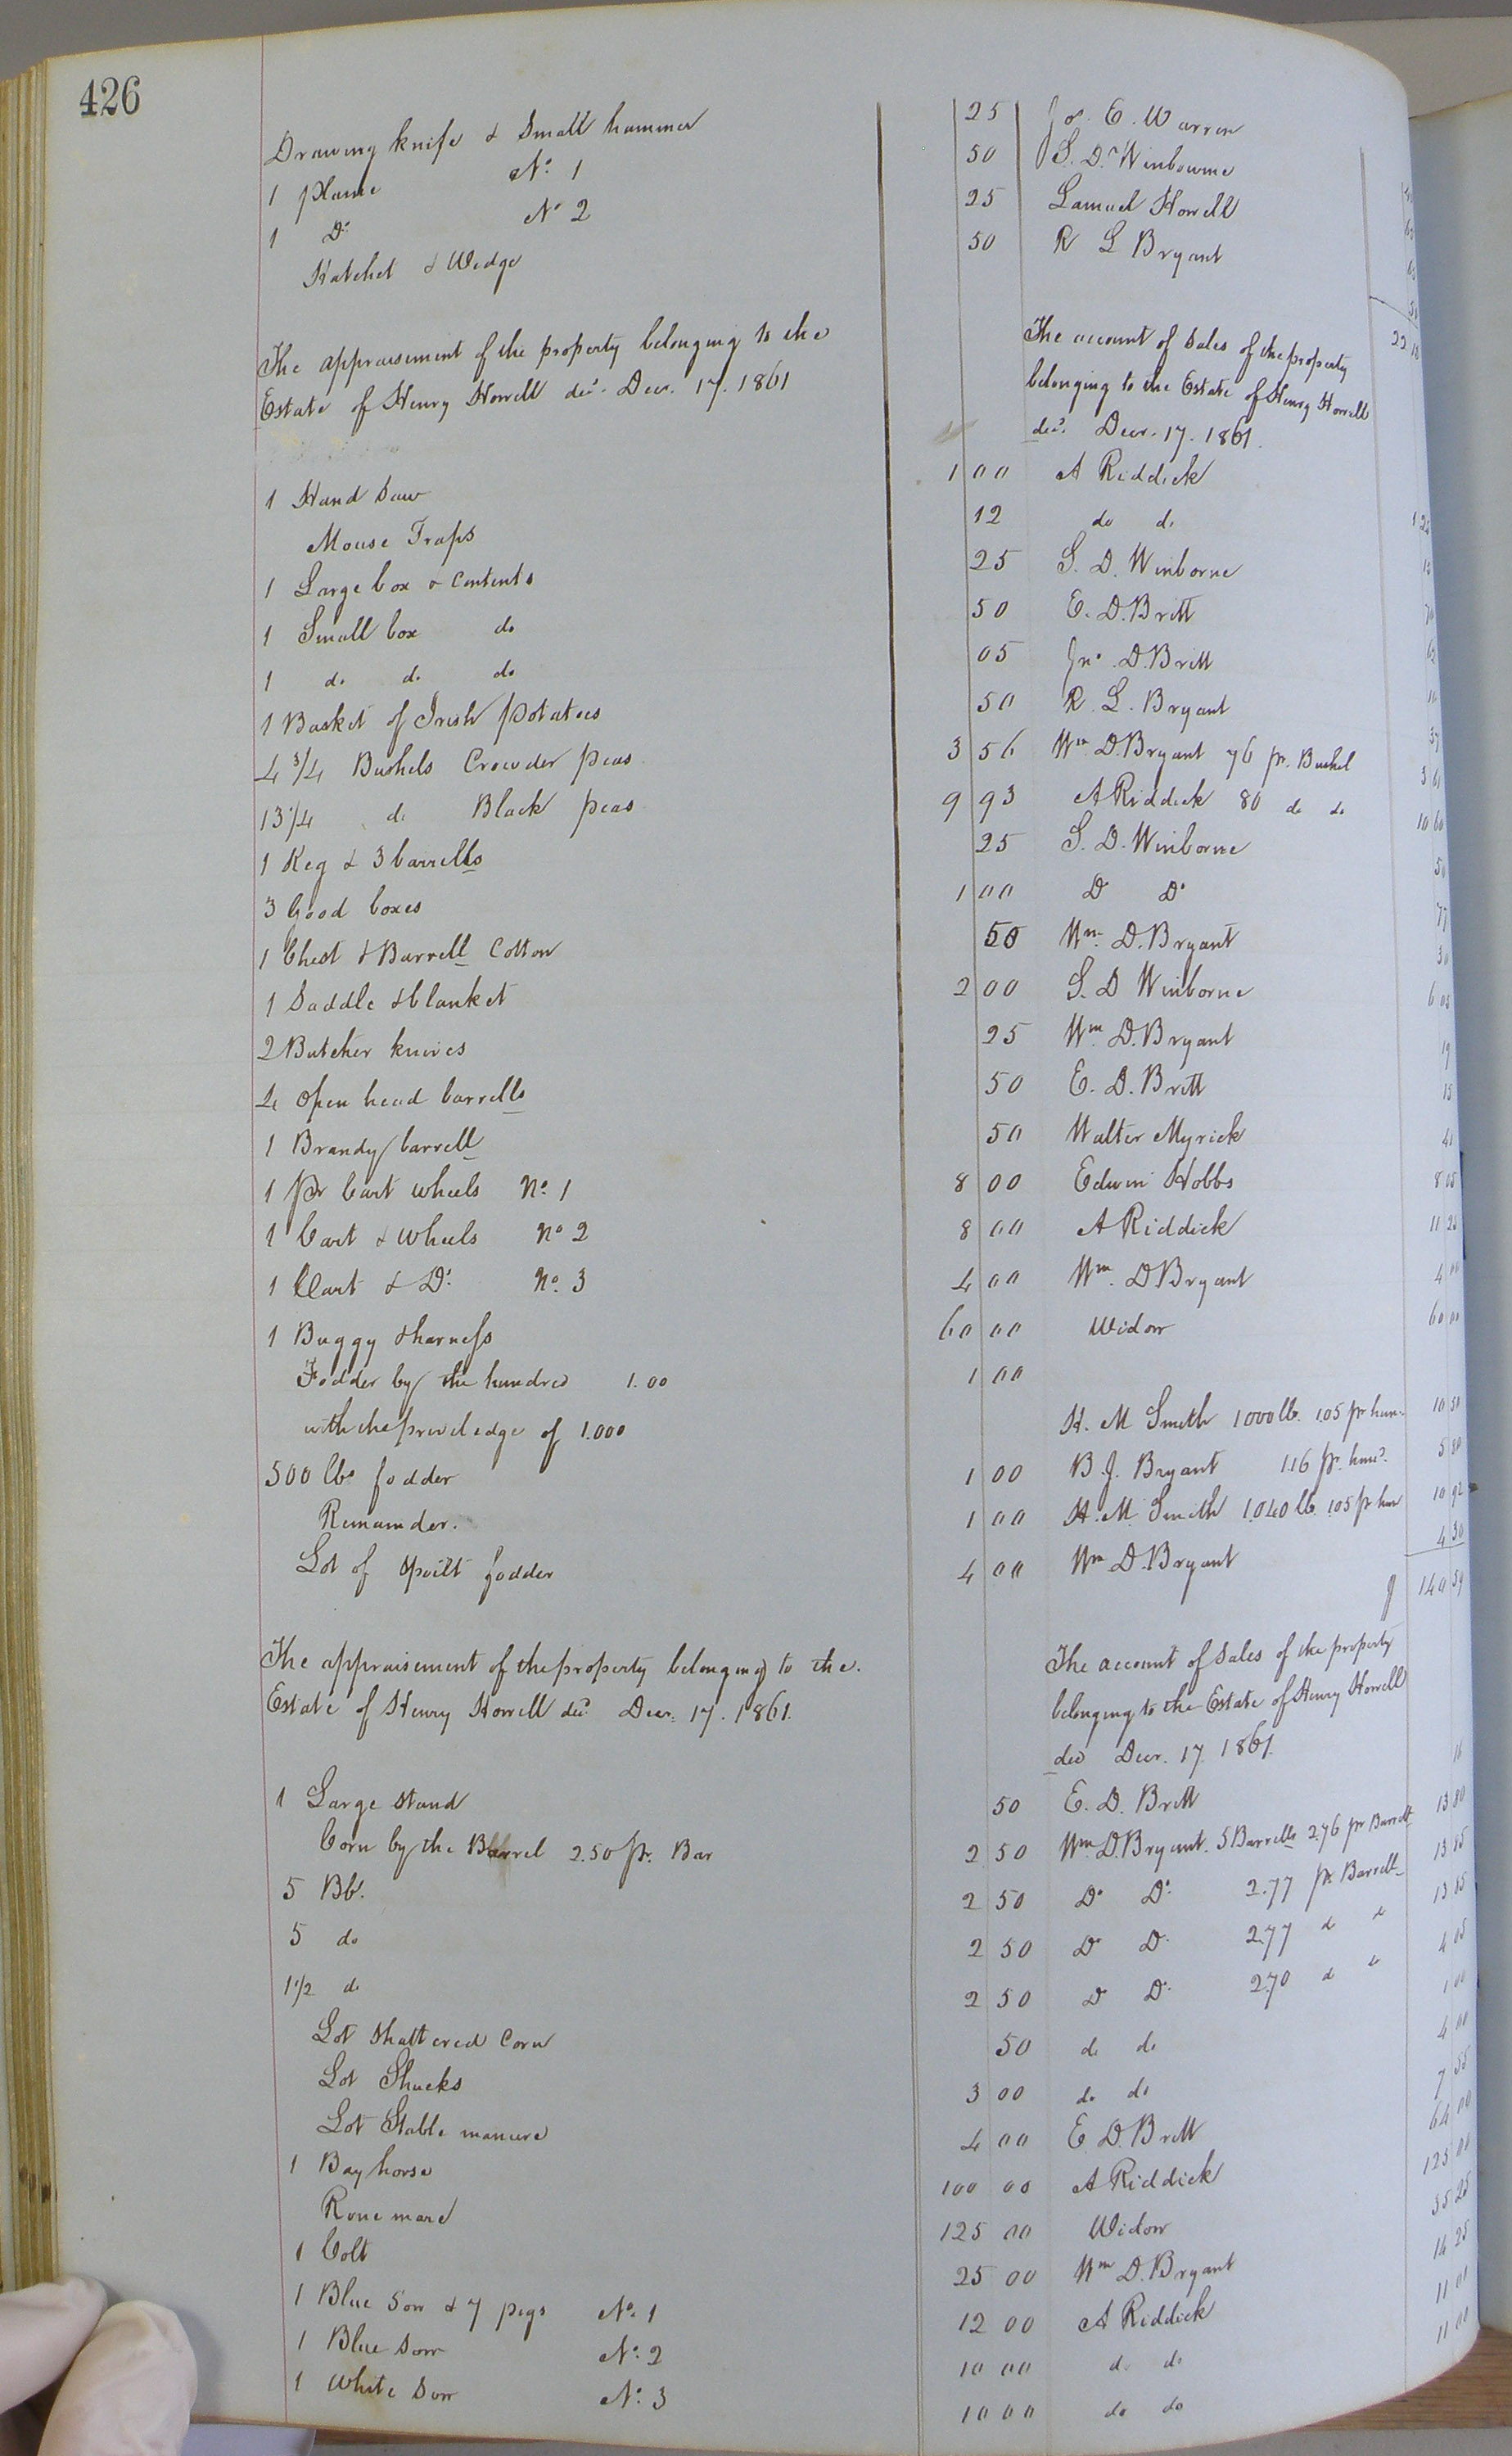 426
Drawing knife & Small hammer 25 Jos. E. Warren
1 plane No. 1 50 S. D. Winbourne
1 Do. No 2 25 Lamuel Howell
Hatchet & Wedge 50 R L Bryant
The appraisement of the property belonging to the
Estate of Henry Howell decd. Decr. 17. 1861
The account of Sales of the property 22
belonging to the Estate of Henry Howell
decd. Decr. 17. 1861.
1 Hand Saw 1 00 A Riddick
Mouse Traps 12 do do
1 Large box & Contents 25 S. D. Winborne
1 Small box do 50 E. D. Britt
1 do do do 05 Jno. D. Britt
1 Basket of Irish potatoes 50 R. L. Bryant
4 3/4 Bushels Crowder peas 3 56 Wm D. Bryant 76 pr. Bushel
13 1/4 do Black peas 9 93 A Riddick 80 do do 10 60
1 Keg & 3 barrells 25 S. D. Winborne
3 Good boxes 1 00 Do Do
1 Chest & Barrell Cotton 50 Wm. D. Bryant
1 Saddle & blanket 2 00 S. D Winborne
2 Butcher knives 25 Wm. D. Bryant
4 open head barrells 50 E. D. Britt
1 Brandy barrell 50 Walter Myrick
1 pr Cart wheels No. 1 8 00 Edwin Hobbs
1 Cart & Wheels No 2 8 00 A Riddick
1 Cart & Do. No. 3 4 00 Wm. D Bryant 4 00
1 Buggy & harness 60 00 Widow 60 00
Fodder by the hundred 1.00 1 00
with the priviledge of 1.000 H. M Smith 1000 lb. 1.05 pr hun. 10 50
500 lbs fodder 1 00 B. J. Bryant 1.16 pr. hund. 5 80
Remainder. 1 00 H. M. Smith 1.040 lb. 1.05 pr hun 10 92
Lot of spoilt fodder 4 00 Wm D. Bryant 4 30
140 59
The appraisement of the property belonging to the
Estate of Henry Howell decd Decr. 17. 1861.
The account of Sales of the property
belonging to the Estate of Henry Howell
decd Decr. 17. 1861.
1 Large Stand 50 E. D. Britt
Corn by the Barrel 2.50 pr. Bar 2 50 Wm D. Bryant. 5 Barrells 2.76 pr Barrell 13 80
5 Bbl. 2 50 Do Do. 2.77 pr. Barrell 13 85
5 do 2 50 Do Do. 2.77 do do 13 85
1 1/2 do 2 50 Do Do. 2.70 do do 4 05
Lot Shattered Corn 50 do do 1 00
Lot Shucks 3 00 do do 4 00
Lot Stable manure 4 00 E. D. Britt 7 55
1 Bay horse 100 00 A Riddick 64 00
Rone mare 125 00 Widow 125 00
1 Colt 25 00 Wm D. Bryant 35 25
1 Blue Sow & 7 pigs No. 1 12 00 A Riddick 14 25
1 Blue Sow No. 2 10 00 do do 11 01
1 White Sow No. 3 10 00 do do 11 00